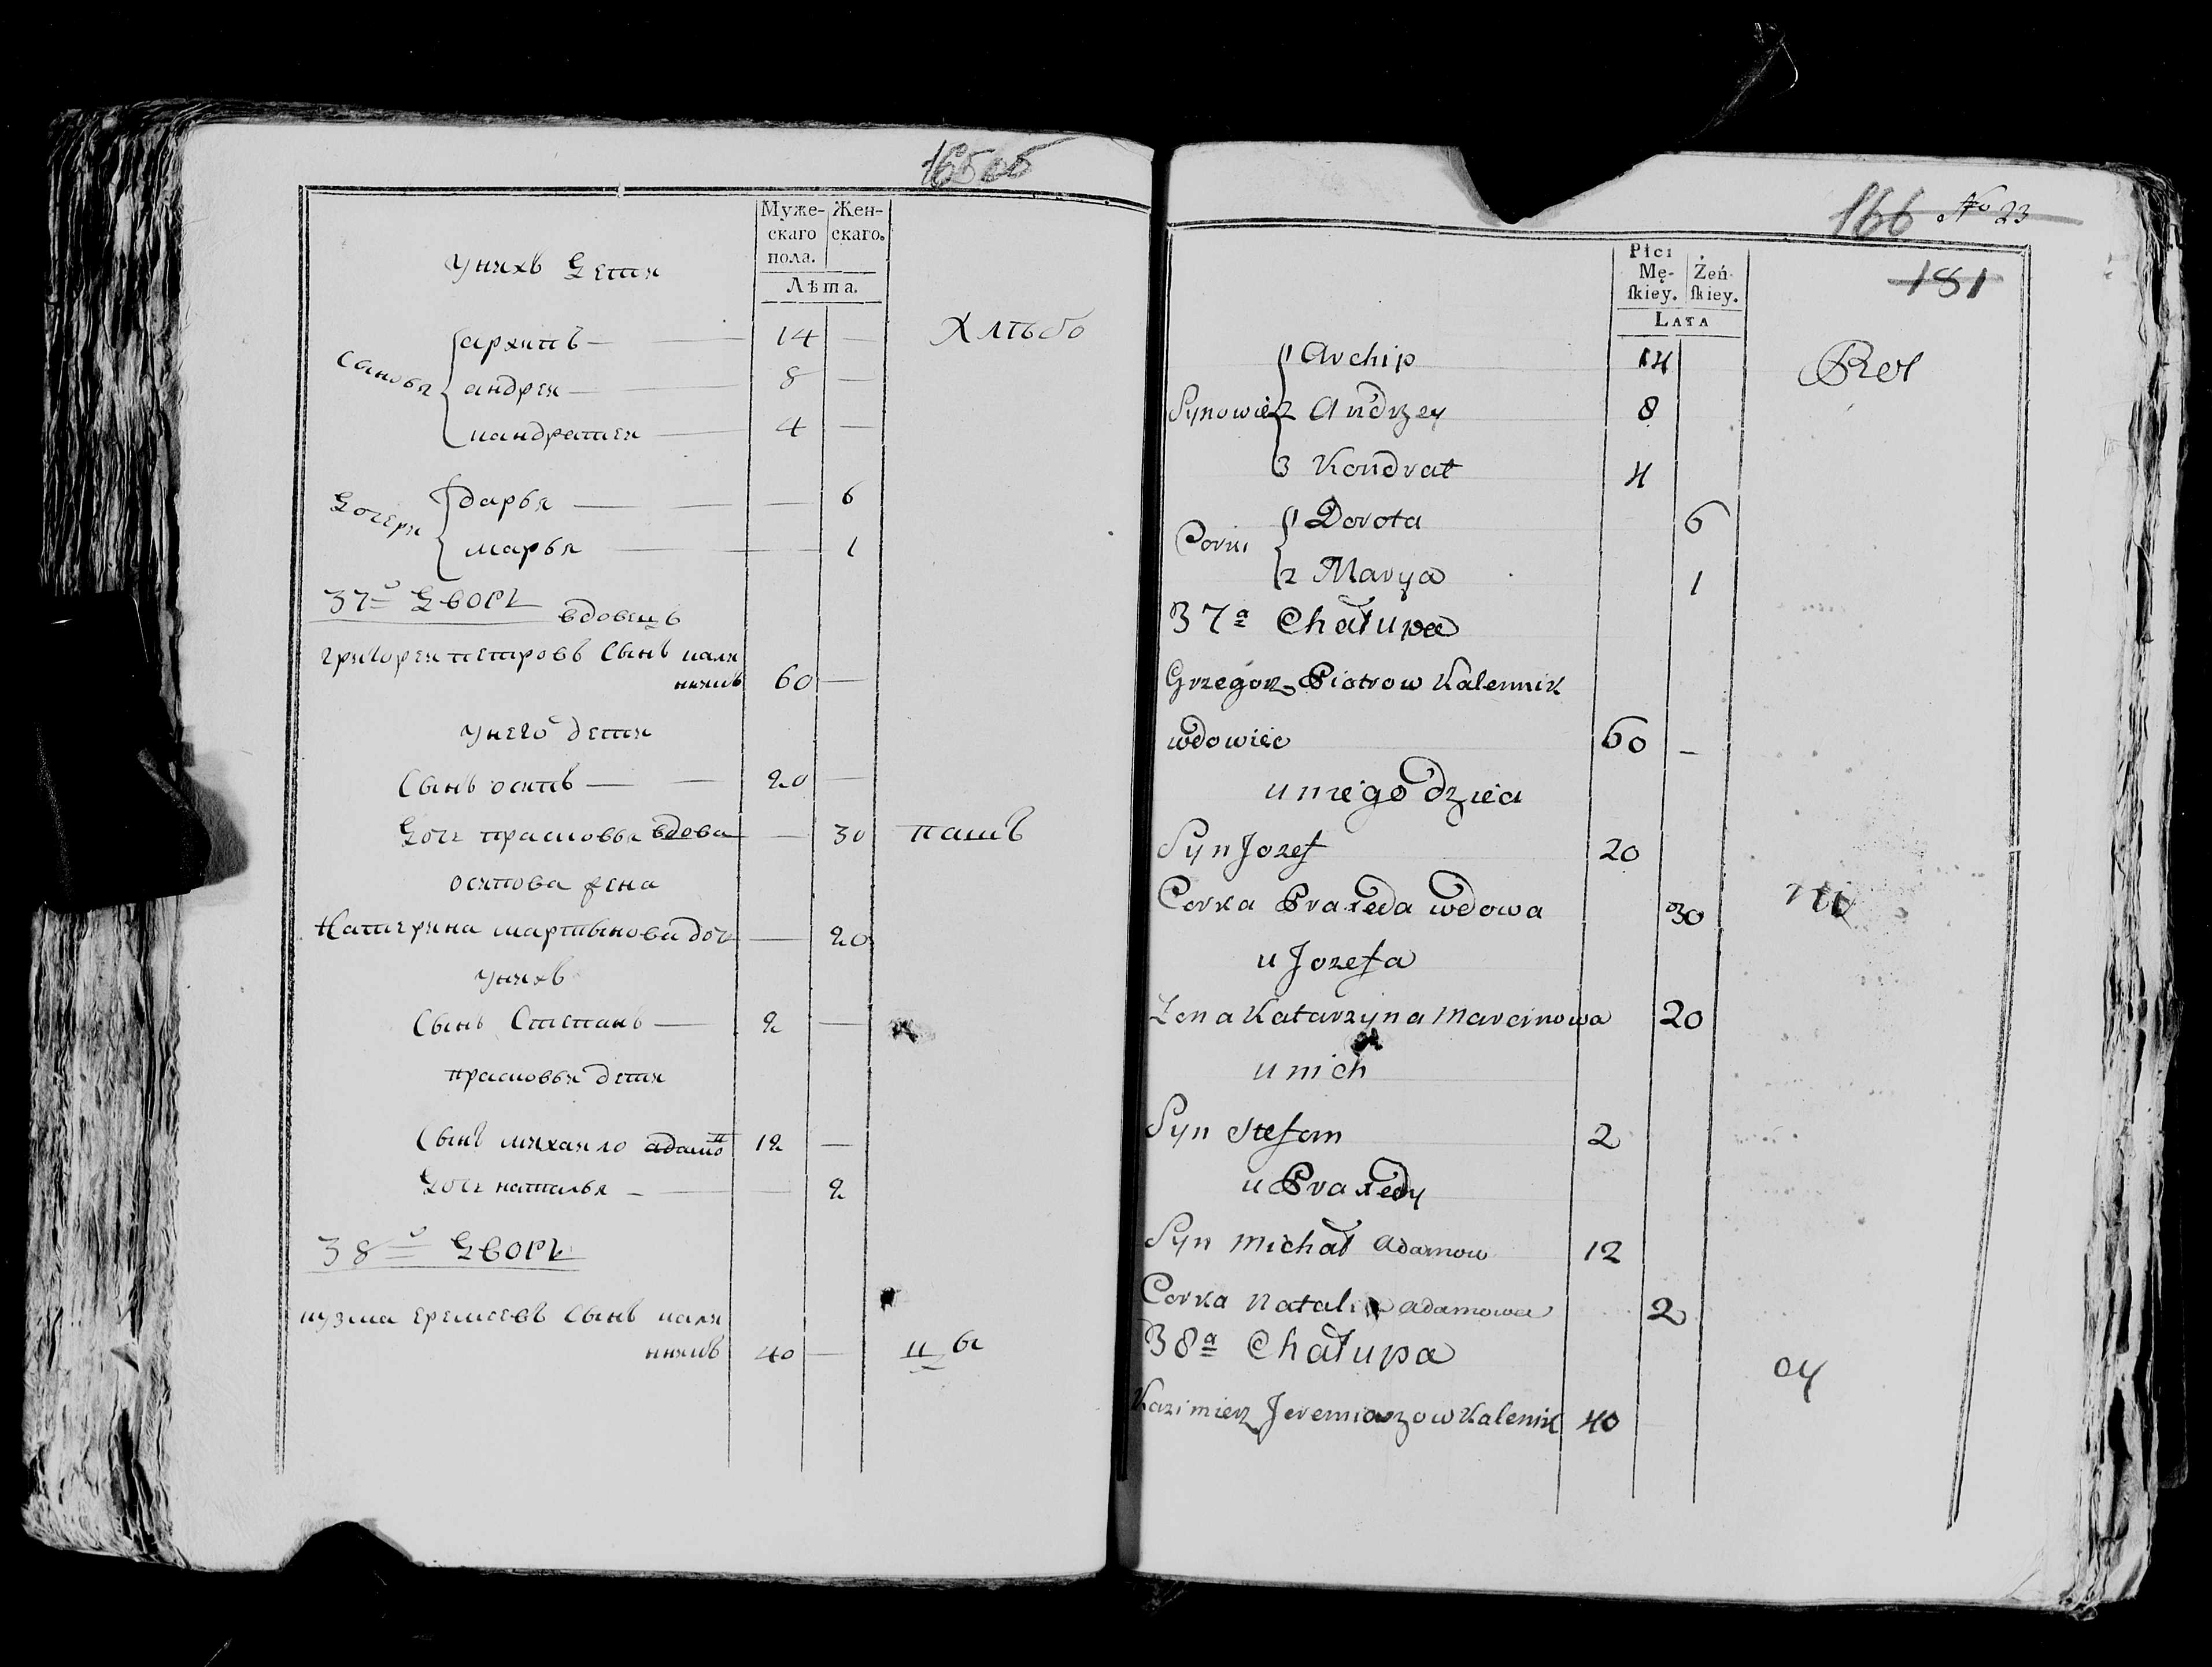 165об
Муже-
скаго
пола.
Жен-
скаго.
Лѣта.
унихъ Дети
Хлѣбо
Сановя
архипъ 14 —
андреи 8 —
кандратеи 4 —
Дочери
дарья — 6
марья — 1
37й Дворъ вдовецъ
григореи петровъ Сынъ кали
никъ 60 —
унего дети
Сынъ осипъ 20 —
Дочь прасковья вдова — 30 пашъ
осипова жена
Катерина мартынова доч — 20
унихъ
Сынъ Степанъ 2 —
прасковьи дети
Сынъ михаило адамо 12 —
Дочь наталья — 2
38й Дворъ
кузма еремеевъ Сынъ кали
никъ 40 —
166 No 23
181
Płci
Mę-
ſkiey.
Żeń-
ſkiey.
Lata
Synowie
1 Archip 14
2 Andrzey 8
3 Kondrat 4
Corki
1 Dorota 6
2 Marya 1
37a Chałupa
Grzegorz Piotrow Kalennik
wdowiec 60 –
u niego dzieci
Syn Jozef 20
Corka Praxeda wdowa 30
u Jozefa
Zona Katarzyna Marcinowa 20
u nich
Syn Stefan 2
u Praxedy
Syn Michał Adamow 12
Corka Natalia Adamowa 2
38a Chałupa
Kazimierz Jeremiaszow Kalenik 40